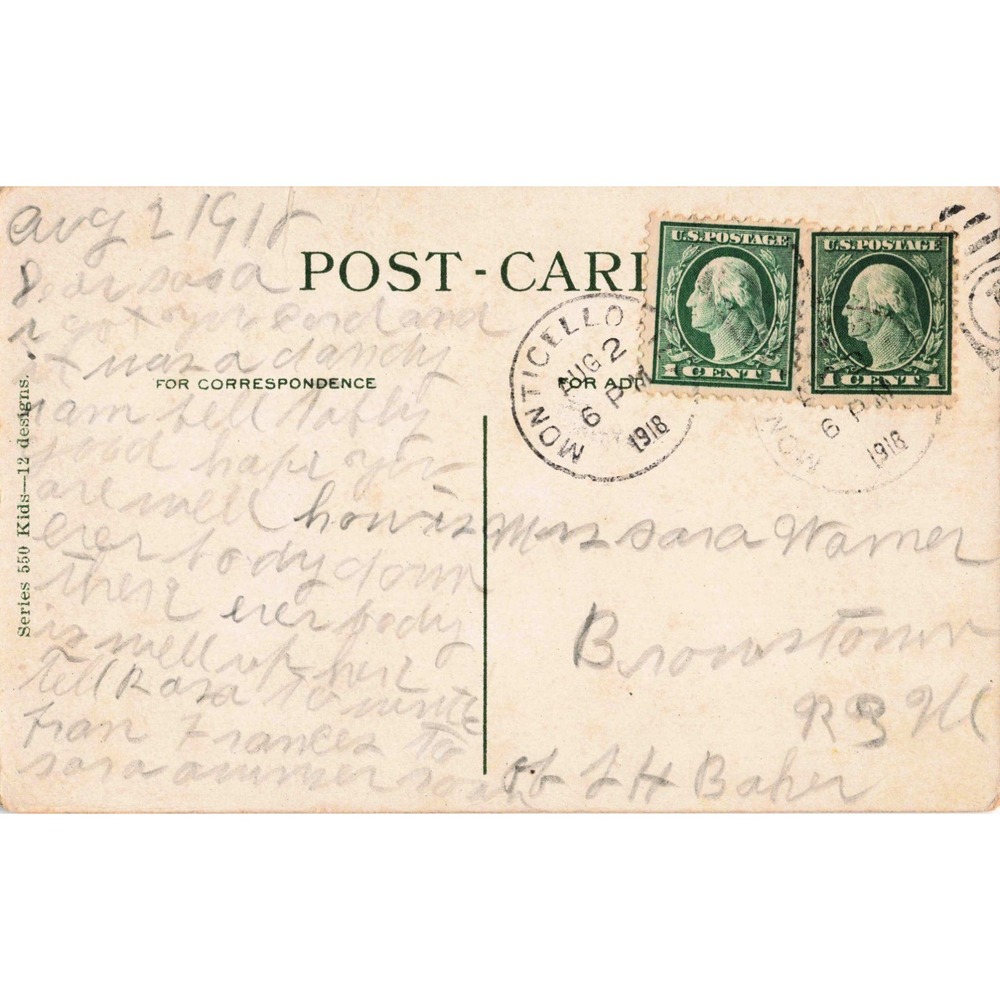 aug 2 1918
Dear sara
I got your card and
it was a dandy
I am
good hope you
are well how is
ever body down
there ever body
is well up here
tell Rosa to write
from Frances to
sara answer soon
POST-CAR
FOR CORRESPONDENCE
FOR ADD
Series 550 Kids—12 designs.
U.S.POSTAGE
1 CENT 1
U.S.POSTAGE
1 CENT 1
MONTICELLO
AUG 2
6 PM
1918
MON
6 PM
1918
Mrs sara Warner
Brownstown
R3
L H Baker